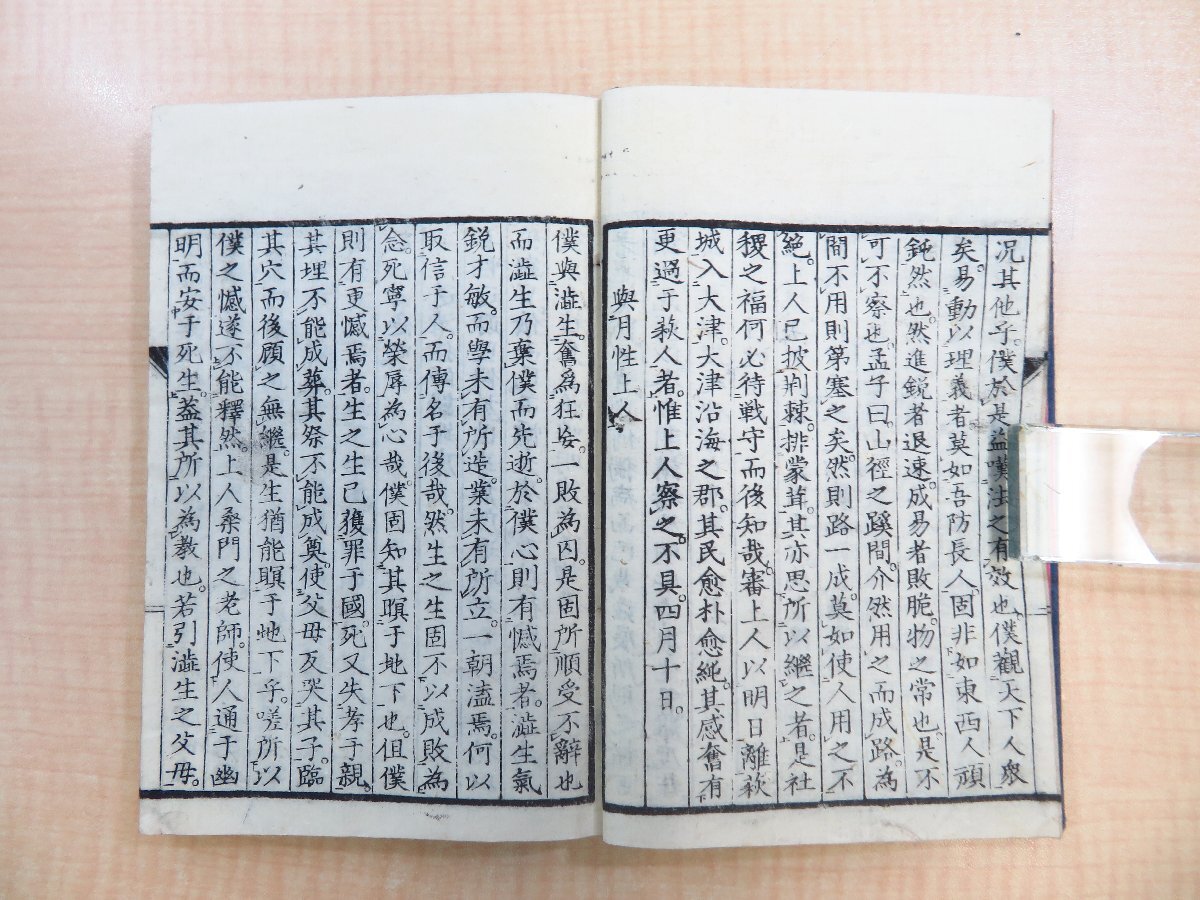 况其他乎。僕於是益嘆法之有效也。僕觀天下人衆
矣。易動以理義者莫如吾防長人。固非如東西人頑
鈍然也。然進鋭者退速。成易者敗脆。物之常也。是不
可不察也。孟子曰。山徑之蹊間。介然用之而成路。為
間不用則茅塞之矣。然則路一成。莫如使人用之不
絶。上人已披荆棘。排蒙茸。其亦思所以繼之者。是社
稷之福。何必待戦守而後知哉。審上人以明日離萩
城入大津。大津沿海之郡。其民愈朴愈純。其感奮有
更過于萩人者。惟上人察之。不具。四月十日。
與月性上人
僕與澁生。奮為狂妄。一敗為囚。是固所順受不辭也
而澁生乃棄僕而先逝。於僕心則有憾焉者。澁生氣
鋭才敏。而學未有所造。業未有所立。一朝溘焉。何以
取信于人。而傳名于後哉。然生之生固不以成敗為
念。死寧以榮辱為心哉。僕固知其暝于地下也。但僕
則有更憾焉者。生之生已獲罪于國。死又失孝于親。
其埋不能成葬。其祭不能成奠。使父母反哭其子。臨
其穴而後顧之無繼。是生猶能瞑于地下乎。嗟所以
僕之憾遂不能釋然。上人桑門之老師。使人通于幽
明而安于死生。葢其所以為教也。若引澁生之父母。